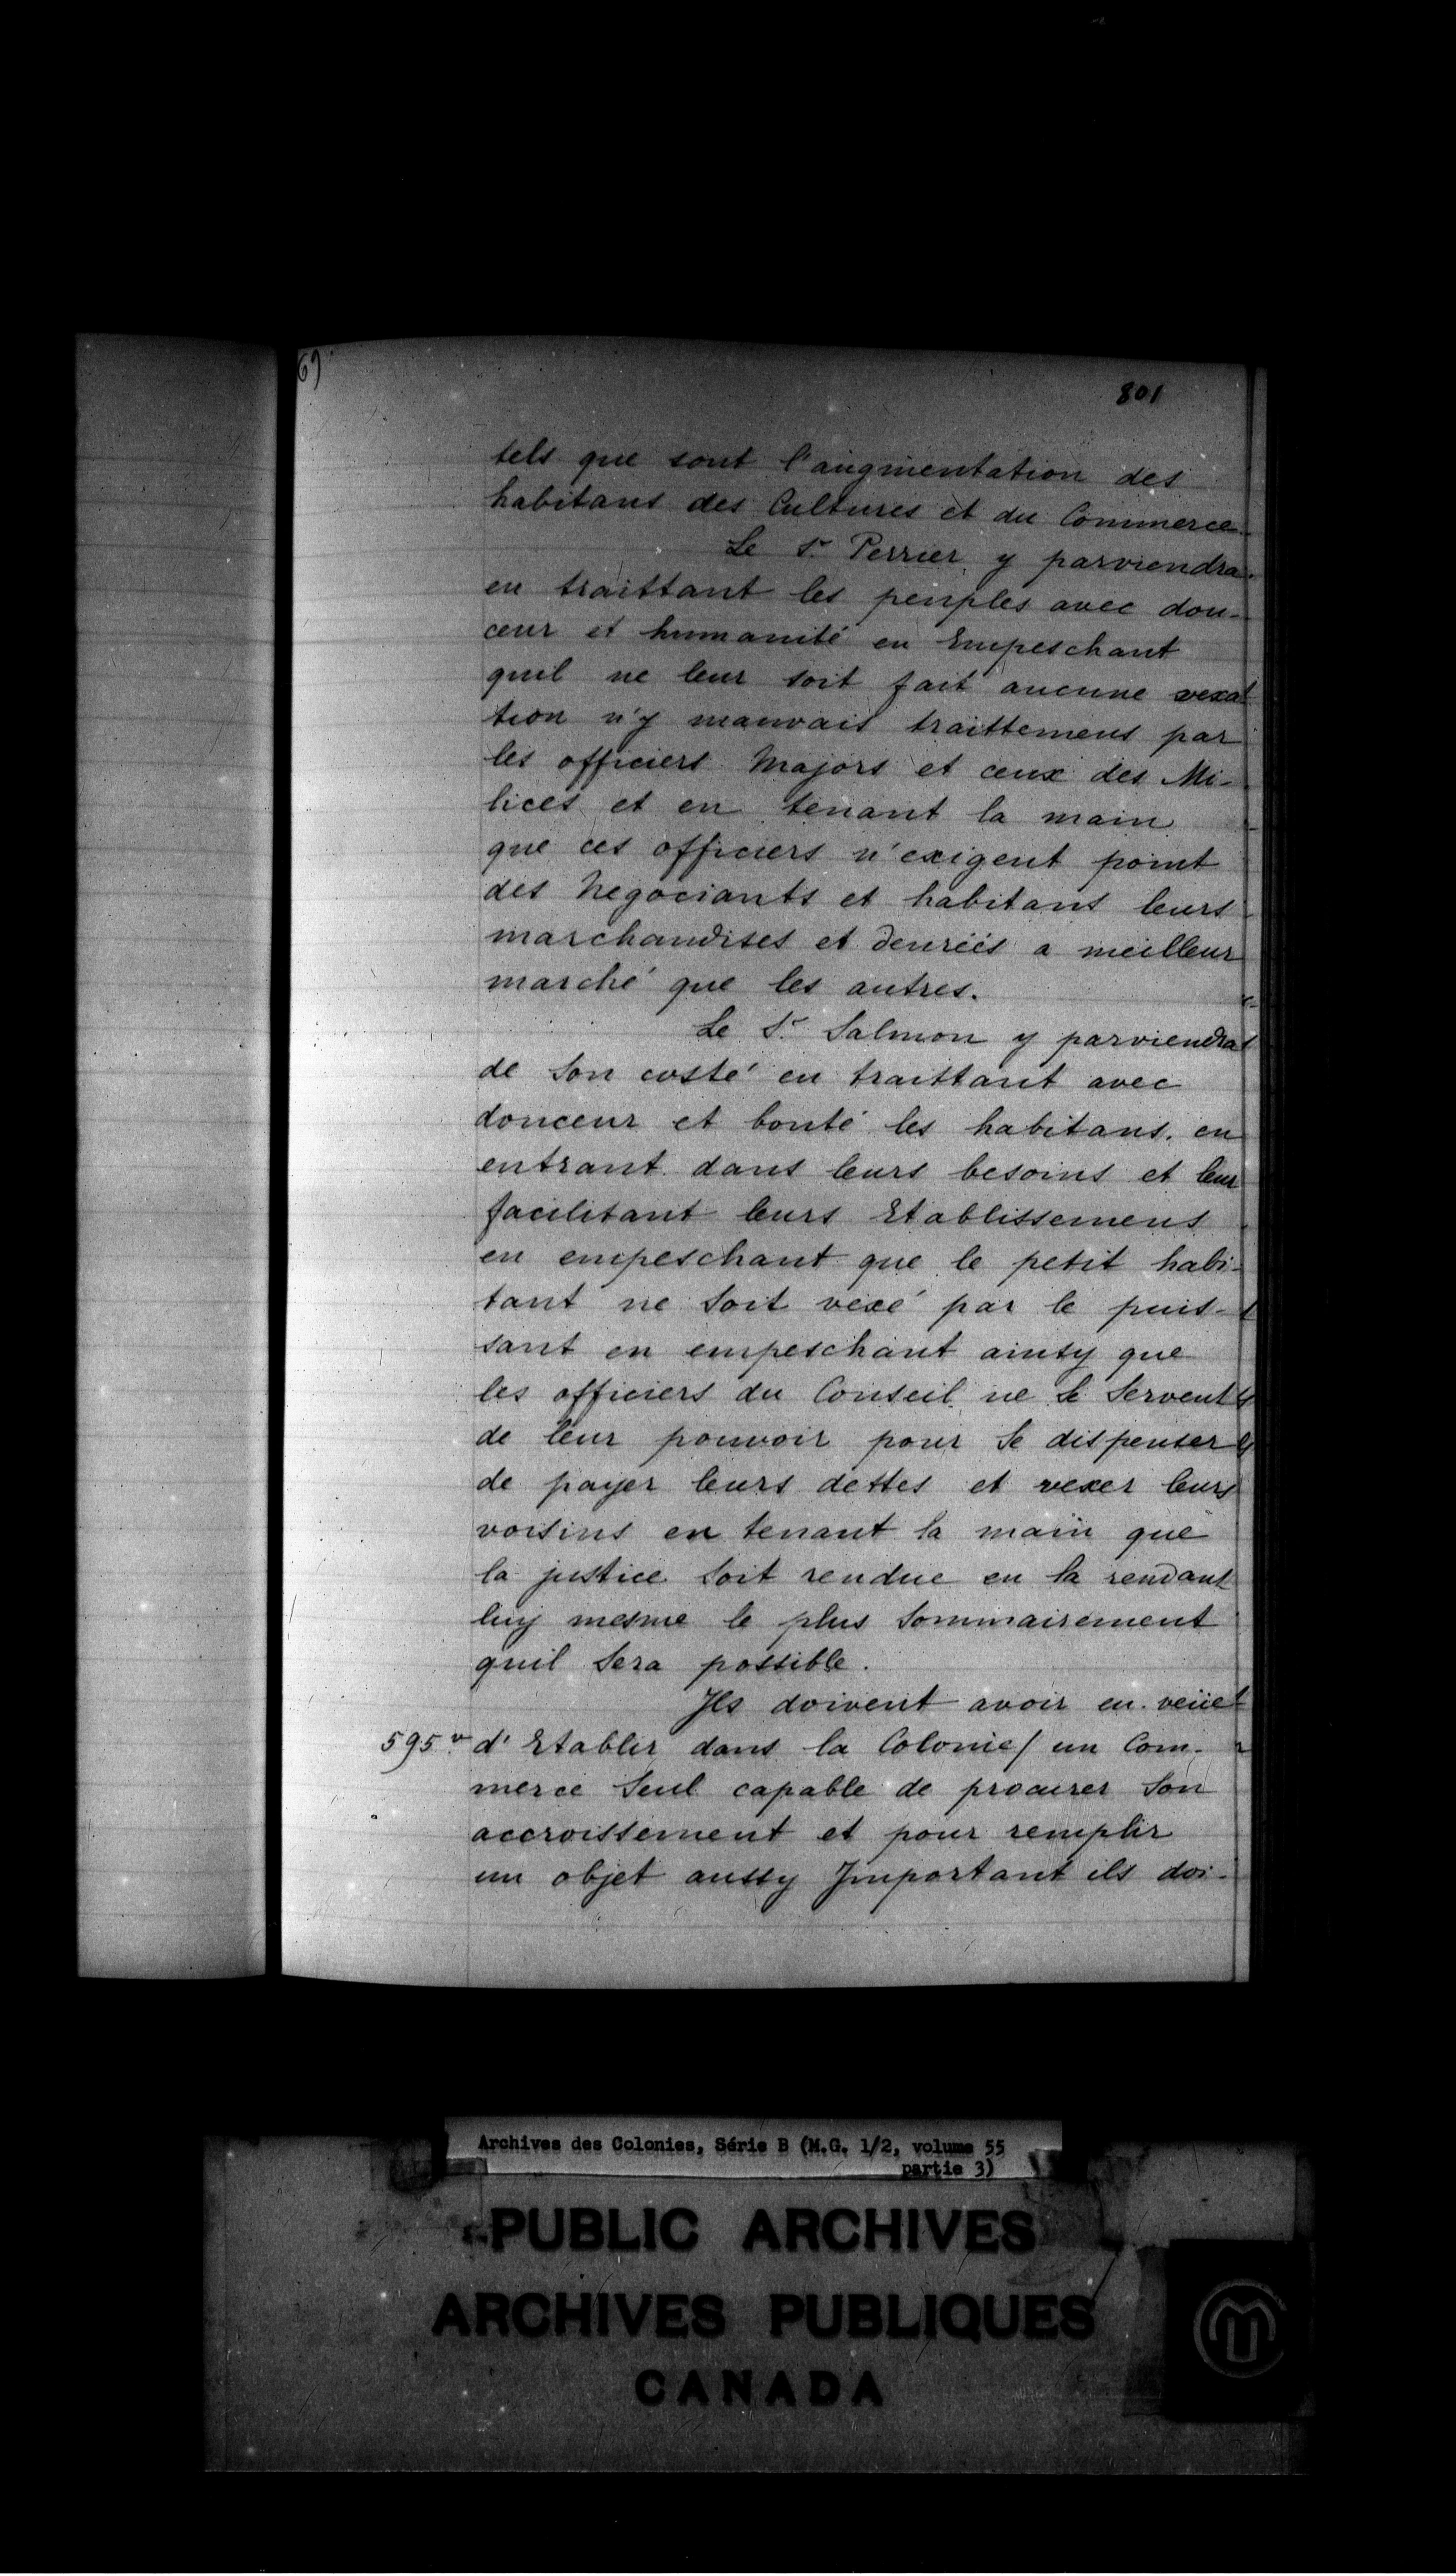 69
801
tels que sont l'augmentation des
habitans des Cultures et du Commerce.
Le Sr Perrier y parviendra
en traittant les peuples avec dou-
ceur et humanité en Empeschant
quil ne leur soit fait aucune vexa-
tion n'y mauvais traittemens par
les officiers Majors et ceux des Mi-
lices et en tenant la main
que ces officiers n'exigent point
des Negociants et habitans leurs
marchandises et denréés a meilleur
marché que les autres.
Le Sr Salmon y parviendra
de son costé en traittant avec
douceur et bonté les habitans. en
entrant dans leurs besoins et leur
facilitant leurs Etablissemens
en empeschant que le petit habi-
tant ne soit vexé par le puis-
sant en empeschant ainsy que
les officiers du Conseil ne se servent
de leur pouvoir pour se dispenser
de payer leurs dettes et vexer leurs
voisins en tenant la main que
la justice soit rendue en la rendant
luy mesme le plus sommairement
quil sera possible.
Ils doivent avoir en veüe
595 v. d'Etablir dans la Colonie/ un Com-
merce seul capable de procurer son
accroissement et pour remplir
un objet aussy Important ils doi-
Archives des Colonies, Série B (M.G. 1/2, volume 55
partie 3)
PUBLIC ARCHIVES
ARCHIVES PUBLIQUES
CANADA